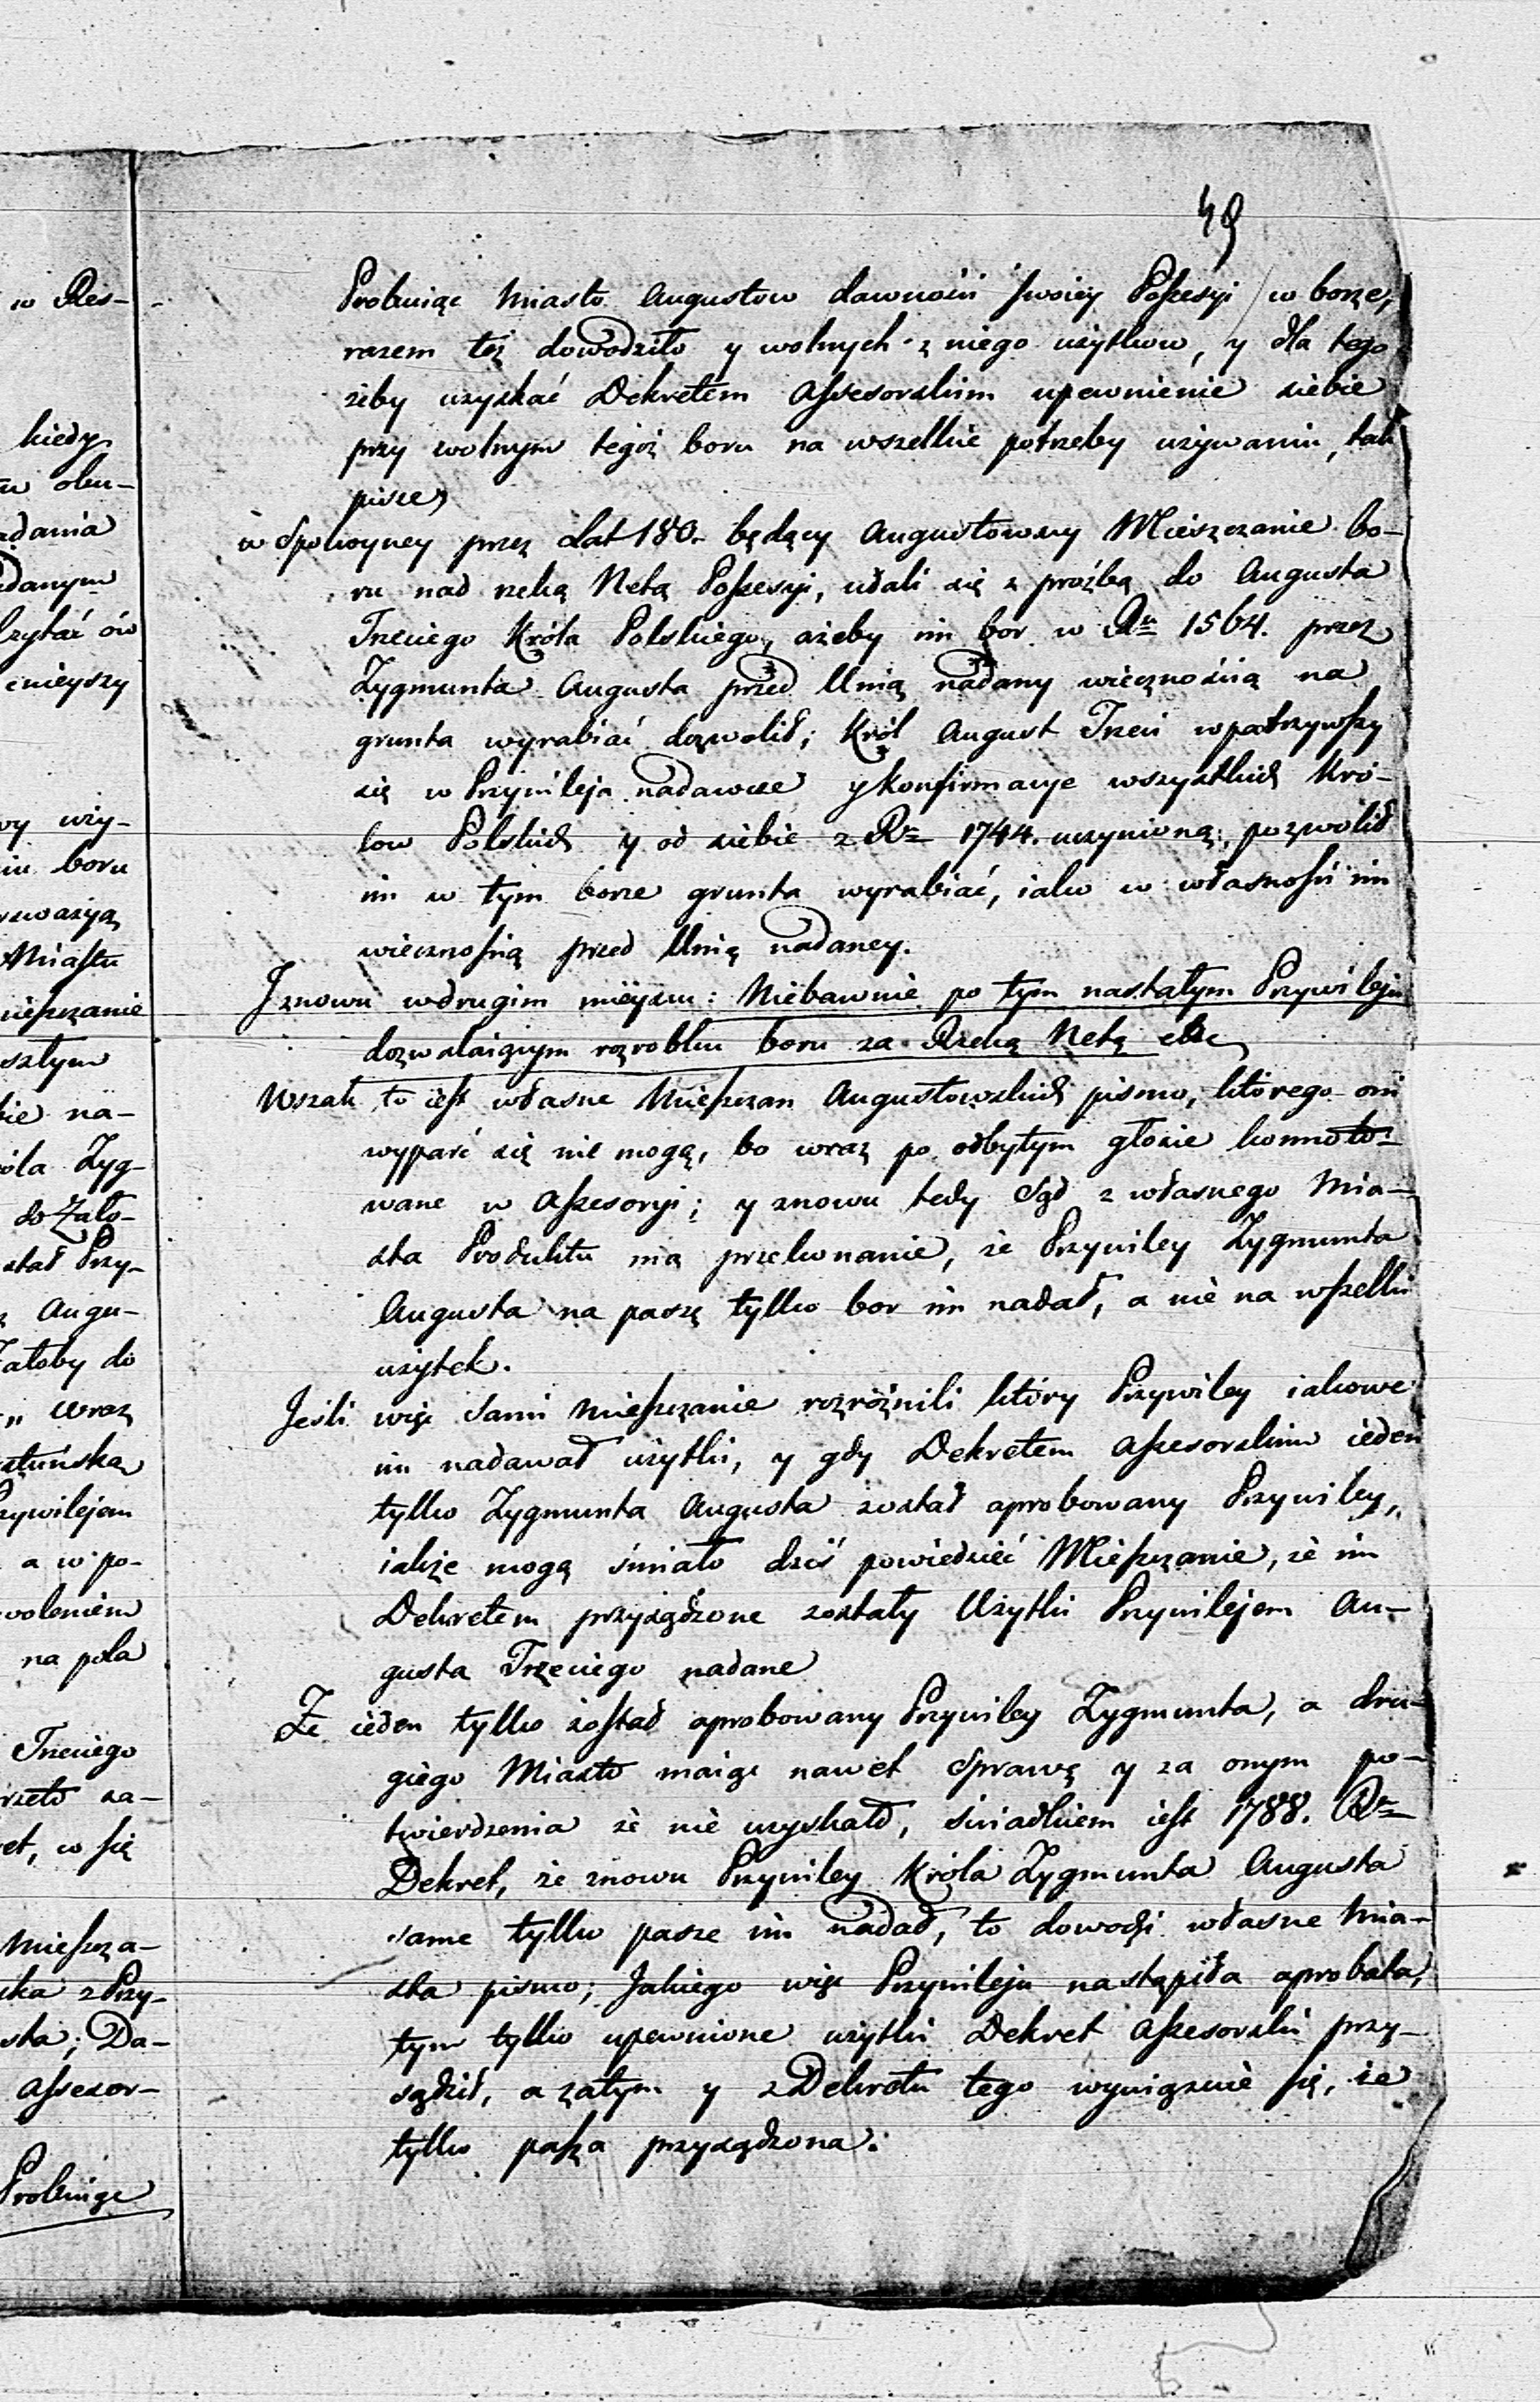 49
w Res-
kiedy
oku-
adania
danym
czytać ów
cnieyszy
wy uży-
niu boru
uważyą
Miastu
mieszczanie
sztym
bie na-
óla Zyg-
do Zało-
stał Przy-
Augu-
Załoby do
wraz
sztuńska
rzywilejem
a w po-
woleniem
na pola
Trzeciego
rzeto za-
et, w się
Mieszcza-
ska z Przy-
sta; Da-
Assesor-
Probuiąc
Probuiąc Miasto Augustow dawność swoiey Possesyi / w borze,
razem też dowodziło y wolnych z niego użytkow, y dla tego
żeby uzyskać Dekretem Assesorskim upewnienie siebie
przy wolnym tegoż boru na wszelkie potrzeby używaniu, tak
pisze,
w Spokoyney przez Lat 180. będący Augustowscy Mieszczanie bo-
ru nad rzeką Netą Possesyi, udali się z proźbą do Augusta
Trzeciego Króla Polskiego, ażeby im bor w Ru 1564. przez
Zygmunta Augusta przed Unią nadany wiecznością na
grunta wyrabiać dozwolił; Król August Trzeci wpatrzywszy
się w Przywileja nadawcze y konfirmacye wszystkich Kró-
low Polskich y od siebie z Ru 1744. uczynioną, pozwolił
im w tym borze grunta wyrabiać, iako w własności im
wiecznością przed Unią nadaney.
I znowu w drugim mieyscu: Niebawnie po tym nastałym Przywileju
dozwalaiącym rozrobku boru za Rzeką Netą etc
Wszak to iest własne Mieszczan Augustowskich pismo, którego oni
wyparć się nie mogą, bo wraz po odbytym głosie konnoto-
wane w Assesoryi; y znowu tedy Sąd z własnego Mia-
sta Produktu ma przekonanie, że Przywiley Zygmunta
Augusta na paszę tylko bor im nadał, a nie na wszelki
użytek.
Jeśli więc sami Mieszczanie rozróżnili który Przywiley iakowe
im nadawał użytki, y gdy Dekretem Assesorskim ieden
tylko Zygmunta Augusta został aprobowany Przywiley,
iakże mogą śmiało dziś powiedzieć Mieszczanie, że im
Dekretem przysądzone zostały Użytki Przywilejem Au-
gusta Trzeciego nadane
Że ieden tylko został aprobowany Przywiley Zygmunta, a dru-
giego Miasto maiąc nawet Sprawę y za onym po-
twierdzenia że nie uzyskało, świadkiem iest 1788. Ru
Dekret, że znowu Przywiley Króla Zygmunta Augusta
same tylko pasze im nadał, to dowodzi własne Mia-
sta pismo; Jakiego więc Przywileju nastąpiła aprobata,
tym tylko upewnione użytki Dekret Assesorski przy-
sądził, a zatym y z Dekretu tego wywiązuie się, że
tylko pasza przysądzona.